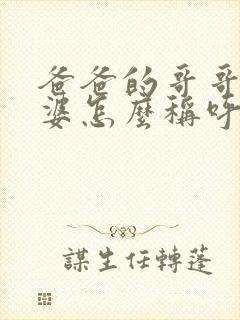 爸爸的哥哥
婆怎麼稱呼
謀生任轉蓬